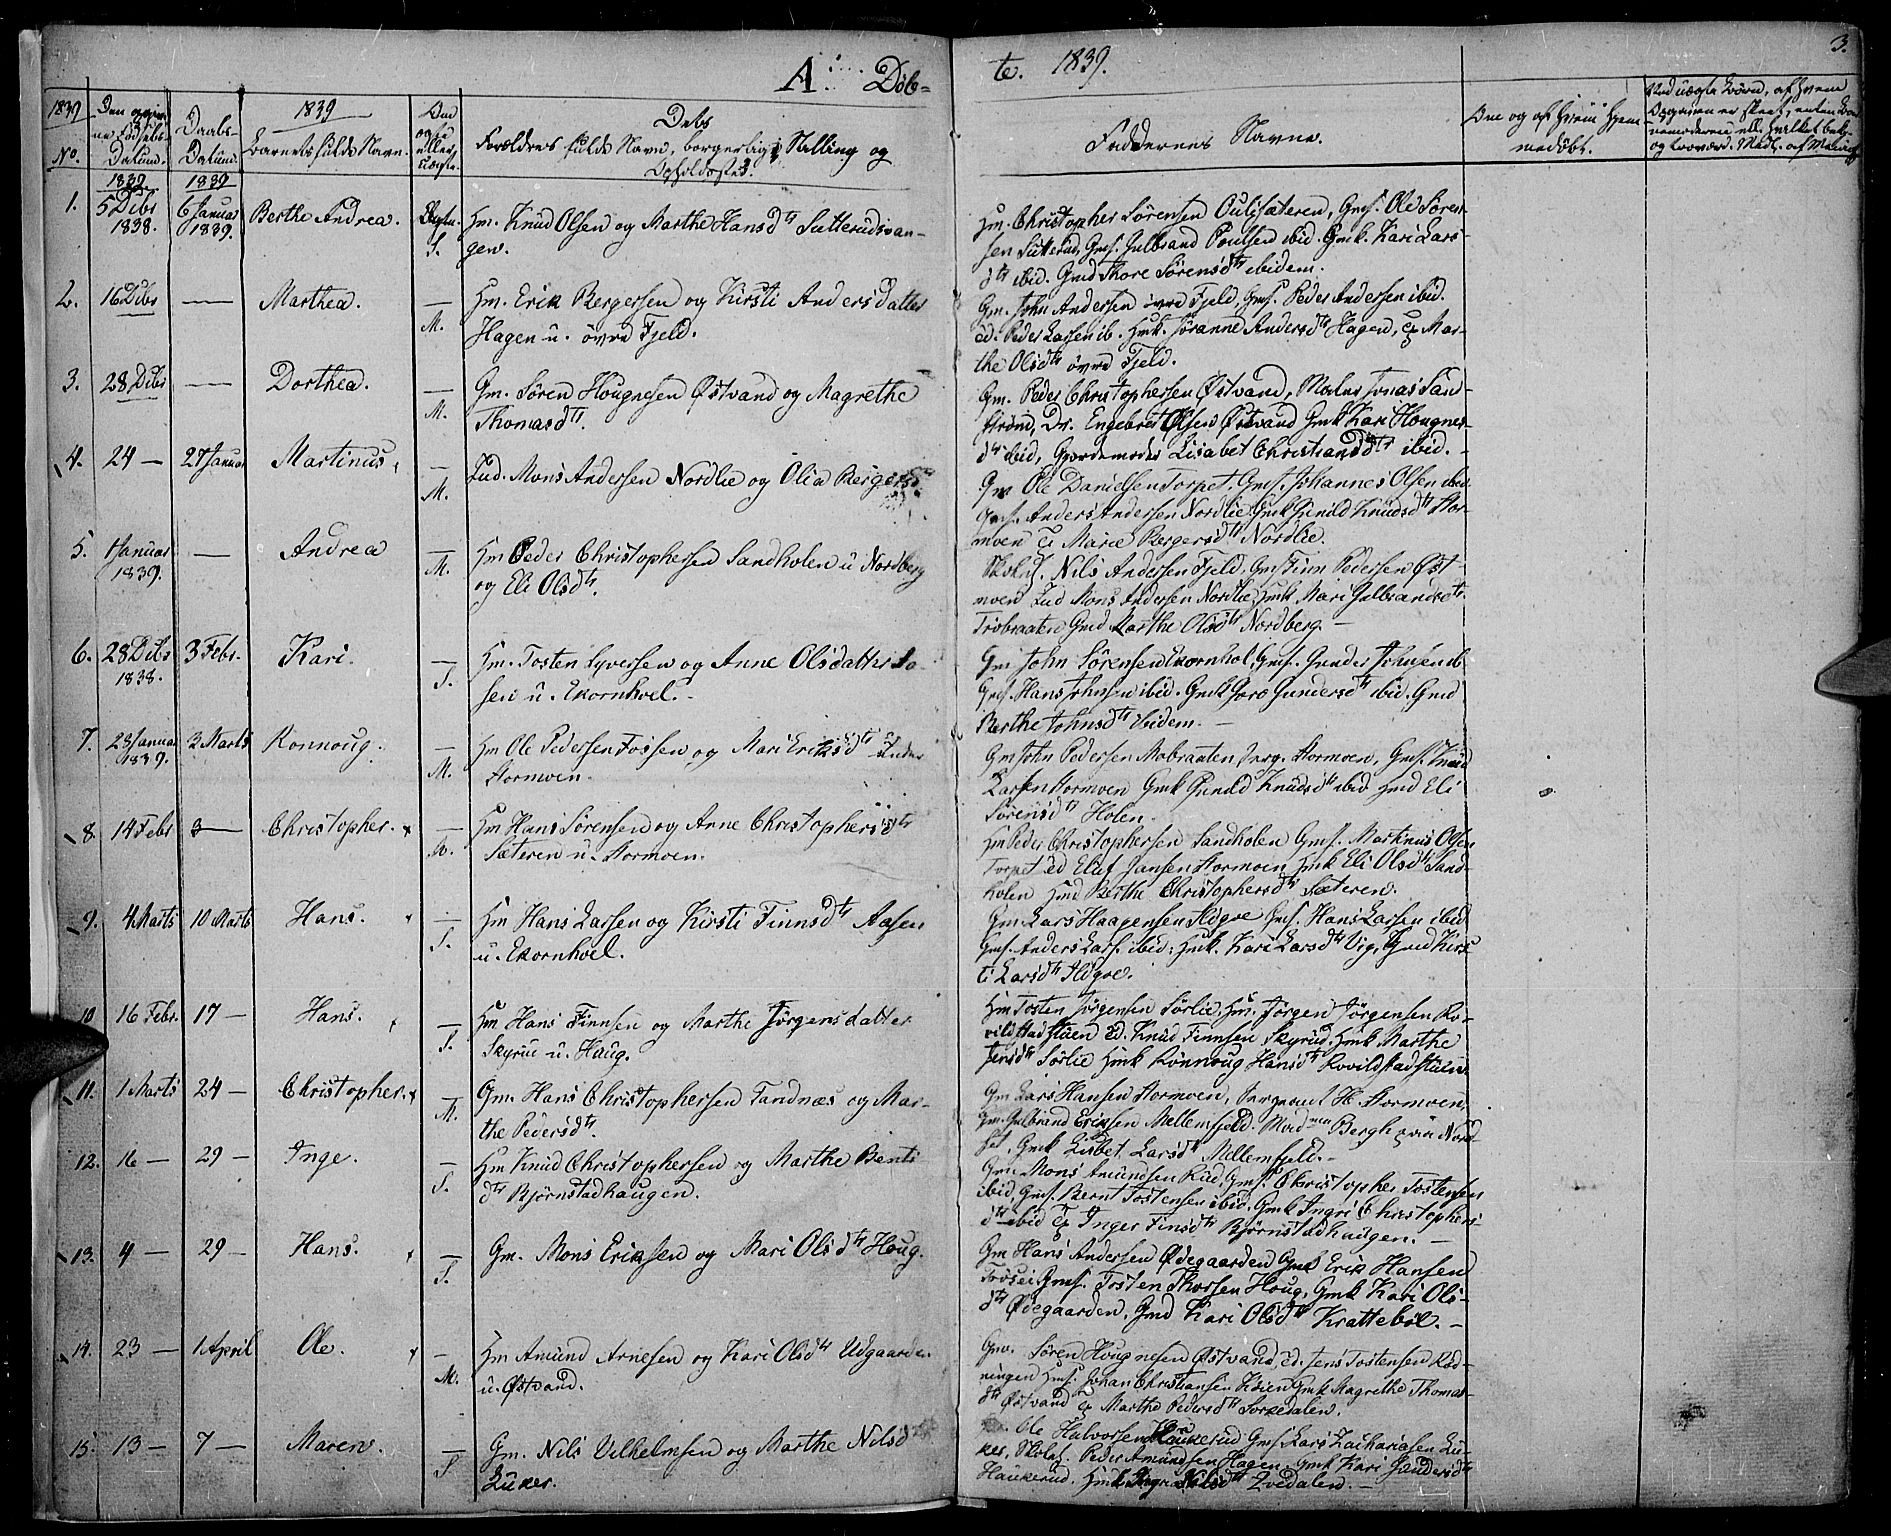 A. Døb-
te. 1839.
3.
1839
No.
Den
Datum.
Daabs-
Datum.
1839
Barnets fulde Navn.
Om
ægte
eller
Dets
Forældres fulde Navn, borgerlige Stilling og
Opholdssted.
Faddernes Navne.
Om og af hvem hjem-
medøbt.
Ved uægte Børn, af hvem
1839.
1839
1. 5 Dibr 6 Januar Berthe Andrea. Ægte. Hm. Knud Olsen og Marthe Hansdtr Sutterudsvan-
1838. 1839. S. gen.
Hm. Christopher Sørensen Gulisæteren, Gmf. Ole Søren-
sen Sutterud, Gmf. Gulbrand Poulsen ibid. Gmk. Kari Lars-
dtr ibid. Gmd Thore Sørensdtr ibidem.
2. 16 Dibr — Marthea. — Hm. Erik Bergersen og Kirsti Andersdatter
M. Hagen u. övre Fjeld.
Gm. John Andersen övre Fjeld, Gmf. Peder Andersen ibid.
Ed. Peder Larsen ib. Hmk. Jöranne Andersdtr Hagen, & Mar-
the Olsdtr övre Fjeld.
3. 28 Dibr — Dorthea. — Gm. Søren Hougnesen Østvand og Magrethe
M. Thomasdtr.
Gm. Peder Christophersen Østvand, Maler Jonas Sand-
strönd, Dr. Engebret Olsen Østvand Gmk Kari Hougnes-
dtr ibid, Gjordemoder Lisabet Christiansdtr ibid.
4. 24 — 27 Januar Martinus. — Ind. Mons Andersen Nordlie og Olia Bergers
M.
Gm Ole Danielsen Torpet, Gmf. Johannes Olsen ibid.
Gmf. Anders Andersen Nordlie. Gmk Gunild Knudsdtr Stor-
moen & Marie Bergersdtr Nordlie.
5. 1 Januar — Andrea — Hm Peder Christophersen Sandholen u Nordberg
1839. M. og Eli Olsdtr.
Skolel. Nils Andersen Fjeld, Gmf Finn Pedersen Øst-
moen Ind Mons Andersen Nordlie, Hmk Mari Gulbrandsdtr
Trobraaten Gmd Marthe Olsdtr Nordberg. —
6. 28 Dibr 3 Febr. Kari. — Hm. Tosten Syversen og Anne Olsdatter
1838. S. sen u. Ekornhoel.
Gm John Sørensen Ekornhol, Gmf. Gunder Johnsen ib
Gmf. Hans Johnsen ibid. Gmk Goro Gundersdtr ibid. Gmd
Berthe Johnsdtr ibidem. —
7. 23 Januar 3 Marts Ronnoug. — Hm Ole Pedersen Fossen og Mari Eriksdtr under
1839. M. Stormoen.
Gm John Pedersen Mobraaten, Serg. Stormoen, Gmf. Knud
Larsen Stormoen Gmk Gunild Knudsdtr ibid Hmd Eli
Sörensdtr Holen.
8. 14 Febr 3 — Christopher. — Hm Hans Sørensen og Anne Christophersdtr
M. Sæteren u. Stormoen.
Hm Peder Christophersen Sandholen Gmf. Martinus Olsen
Torpet Ed Eluf Jansen Stormoen, Hmk Eli Olsdtr Sand-
holen Hmd Berthe Christophersdtr Sæteren.
9. 4 Marts 10 Marts Hans. — Hm Hans Larsen og Kirsti Finnsdtr Aasen
S. u. Ekornhoel.
Gm Lars Haagensen Skøgve Gmf. Hans Larsen ibid.
Gmf. Anders Lars. ibid: Hmk. Kari Larsdtr Vig, Gmd Kirs-
ti Larsdtr Skøgve.
10 16 Febr. 17 — Hans. — Hm Hans Finnsen og Marthe Jørgensdatter
S. Skyrud u. Haug.
Hm Tosten Jørgensen Sørlie, Hm. Jørgen Jørgensen Ro-
vildstadstuen Ed. Knud Finnsen Skyrud, Hmk Marthe
Jensdtr Sørlie Hmk Rønnoug Hansdtr Rovildstadstuen
11. 1 Marts 24 — Christopher. — Gm. Hans Christophersen Tandnæs og Mar-
M. the Pedersdtr.
Gm Lars Hansen Stormoen, Sergeant H. Stormoen,
Gm. Gulbrand Eriksen Mellemfjeld. Madme Bergh Nord-
set, Gmk Lisbet Larsdtr Mellemfjeld. —
12. 16 — 29 — Inge. — Hm Knud Christophersen og Marthe Bents
S. dtr Bjørnstadhaugen.
Gm. Mons Amundsen Rud, Gmf. Christopher Tostensen
ibid, Gmf. Bernt Tostensen ibid, Gmk Ingri Christophers-
dtr ibid & Inger Finsdtr Bjørnstadhaugen. —
13. 4 — 29 — Hans. — Gm. Mons Eriksen og Mari Olsdtr Houg.
S.
Gm Hans Andersen Ødegaarden Gmf Erik Hansen
Trøsei Gmf. Tosten Thorsen Houg, Gmk Kari Ols-
dtr Ødegaarden, Gmd Kari Olsdtr Krattebøl. —
14. 23 — 1 April Ole. — Hm Amund Arnesen og Kari Olsdtr Udgaarden
M. u. Østvand.
Gm. Søren Hougnesen Østvand, Ed. Jens Tostensen Rød-
ningen Hmf. Johan Christiansen Koien Gmk Magrethe Thomas-
dtr Østvand & Marthe Pedersdtr Sorkedalen.
15. 13 — 7 — Maren. — Gm. Nils Vilhelmsen og Marthe Nilsd
S. Luker.
Ole Halvorsen Haukerud Gmf Lars Zachariasen Lu-
ker, Skolel. Peder Amundsen Hagen, Gmk Kari Gundersdtr
Haukerud. Hmk Nilsdtr Zvedalen. —